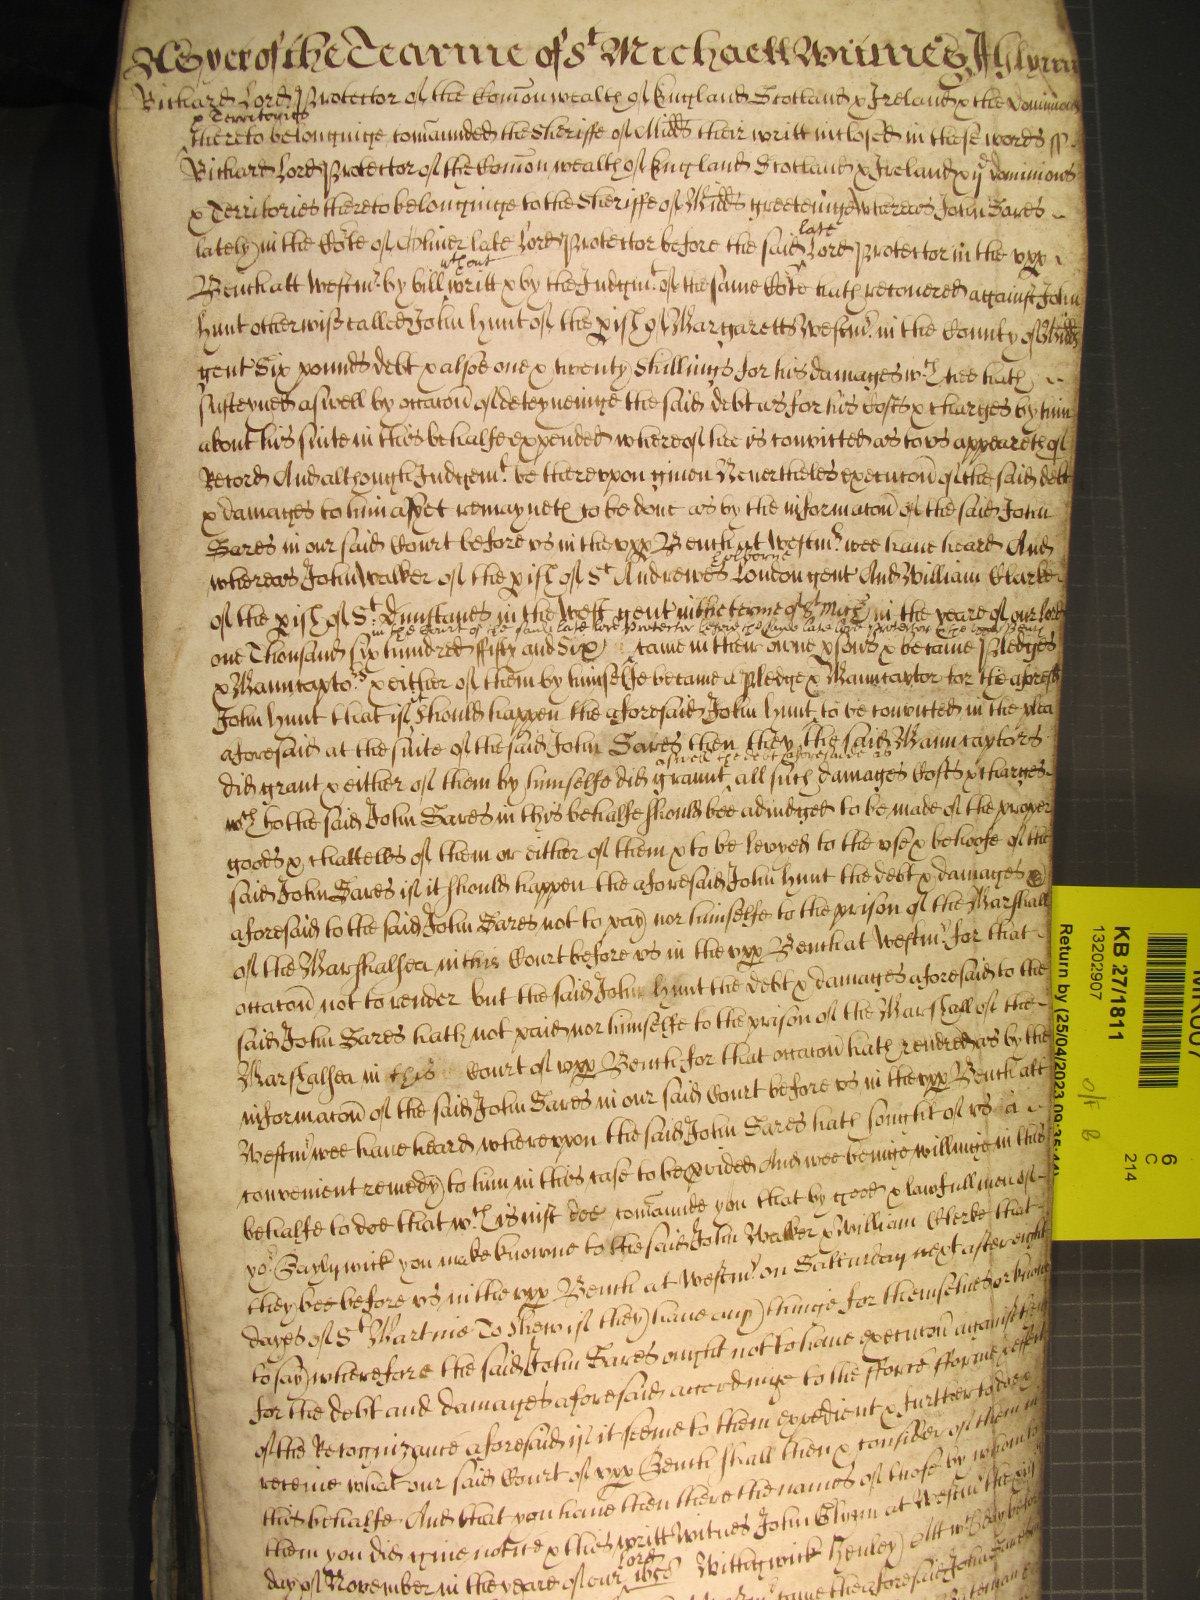 As yet of the Tearme of St Michaell Witnes J Glynn
Richard Lord Protector of the Comon wealth of England Scotland & Ireland & the dominions
& Territories
thereto belonginge comaunded the Sheriffe of Midds their writt inclosed in these words ss
Richard Lord Protector of the Comon wealth of England Scotland & Ireland & ye dominions
& Territories thereto belonginge to the Sheriffe of Midds greeteinge Whereas John Sares
late
lately in the Cote of Oliver late Lord Protector before the said Lord Protector in the upp
wthout
Bench att Westmr by bill writt & by the Judgmt of the same Cote hath recovered against John
Hunt otherwise called John Hunt of the pish of Margaretts Westmr in the County of Midds
gent Six pounds debt & alsoe one & twenty Shillings for his damages wch hee hath
susteyned aswell by occacon of deteyneinge the said debt as for his Costs & charges by him
about his suite in this behalfe expended whereof hee is convicted as to us appeareth of
Record And although Judgemt be thereupon given Nevertheles execucon of the said debt
& damages to him as yet remayneth to be done as by the informacon of the said John
Sares in our said Court before us in the upp Bench at Westmr wee have heard And
Holborne
whereas John Walker of the pish of St Andrewes London gent And William Clarke
of the pish of St Dunstanes in the West gent in the terme of St Mich in the yeare of our Lord
in the Court of the said late Lord Protector before the said late Lord Protector in the upp Bench
one Thousand six hundred ffifty and Six came in their owne psons & became Pledges
& Manucaptors & either of them by himselfe became a Pledge & Manucaptor for the aforesd
John Hunt that if it should happen the aforesaid John Hunt to be convicted in the plea
aforesaid at the suite of the said John Sares then they the said Manucaptors
aswell the debt aforesaid as
did grant & either of them by himselfe did graunt all such damages Costs & charges
wch to the said John Sares in this behalfe should bee adiudged to be made of the proper
goods & chattells of them or either of them & to be levyed to the use & behoofe of the
said John Sares if it should happen the aforesaid John Hunt the debt & damages
aforesaid to the said John Sares not to pay nor himselfe to the prison of the Marshall
of the Marshalsea in this Court before us in the upp Bench at Westmr for that
occacon not to render but the said John Hunt the debt & damages aforesaid to the
said John Sares hath not paid nor himselfe to the prison of the Marshall of the
Marshalsea in this Court of upp Bench for that occacon hath rendred as by the
informacon of the said John Sares in our said Court before us in the upp Bench att
Westmr wee have heard whereupon the said John Sares hath sought of us a
convenient remedy to him in this case to be pvided And wee beinge willinge in this
behalfe to doe that wch is iust doe comaunde you that by good & lawfull men of
yor Baylywick you make knowne to the said John Walker & William Clerke that
they bee before us in the upp Bench at Westmr on Satturday next after eight
dayes of St Martine To shew if they have any thinge for themselves or knowe
to say wherefore the said John Sares ought not to have execucon against them
for the debt and damages aforesaid accordinge to the fforce fforme & effect
of the Recognizance aforesaid if it seeme to them expedient & further to doe &
receive what our said Court of upp Bench shall then & consider of them in
this behalfe And that you have then there the names of those by whom to
them you did give notice & this writt Witnes John Glynn at Westmr the
Lord
day of November in the yeare of our 1658 Wittingwick Henley Att wch day before
came the aforesaid John
KB 27/1811
13202907
Return by (25/04/2023 09:35:44)
6
C
214